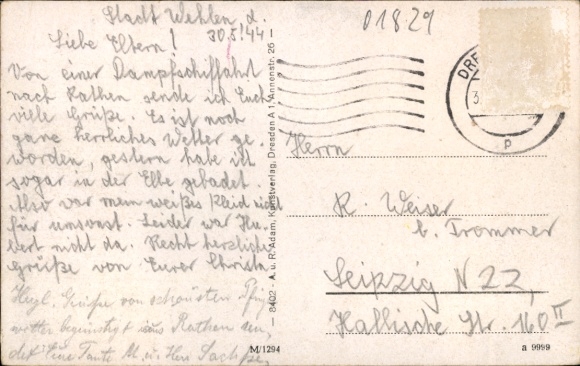 Stadt Wehlen d.
30.5.44
Liebe Eltern!
Von einer Dampfschiffahrt
nach Rathen sende ich Euch
viele Grüße. Es ist noch
ganz herrliches Wetter ge-
worden, gestern habe ich
sogar in der Elbe gebadet.
Also war mein weißes Kleid nicht
für umsonst. Leider war Hu-
bert nicht da. Recht herzliche
Grüße von Eurer Christa
Herzl. Grüße von schönsten Pfing
begünstigt aus Rathen sen
det Eure Tante M. u. Herr
01829
DRE
P
Herrn
K. Weiser
b. Trommer
Leipzig N 22,
Hallische Str. 160 II
8402 - A. u. R. Adam, Kunstverlag, Dresden A 1, Annenstr. 25
M/1294
a 9999